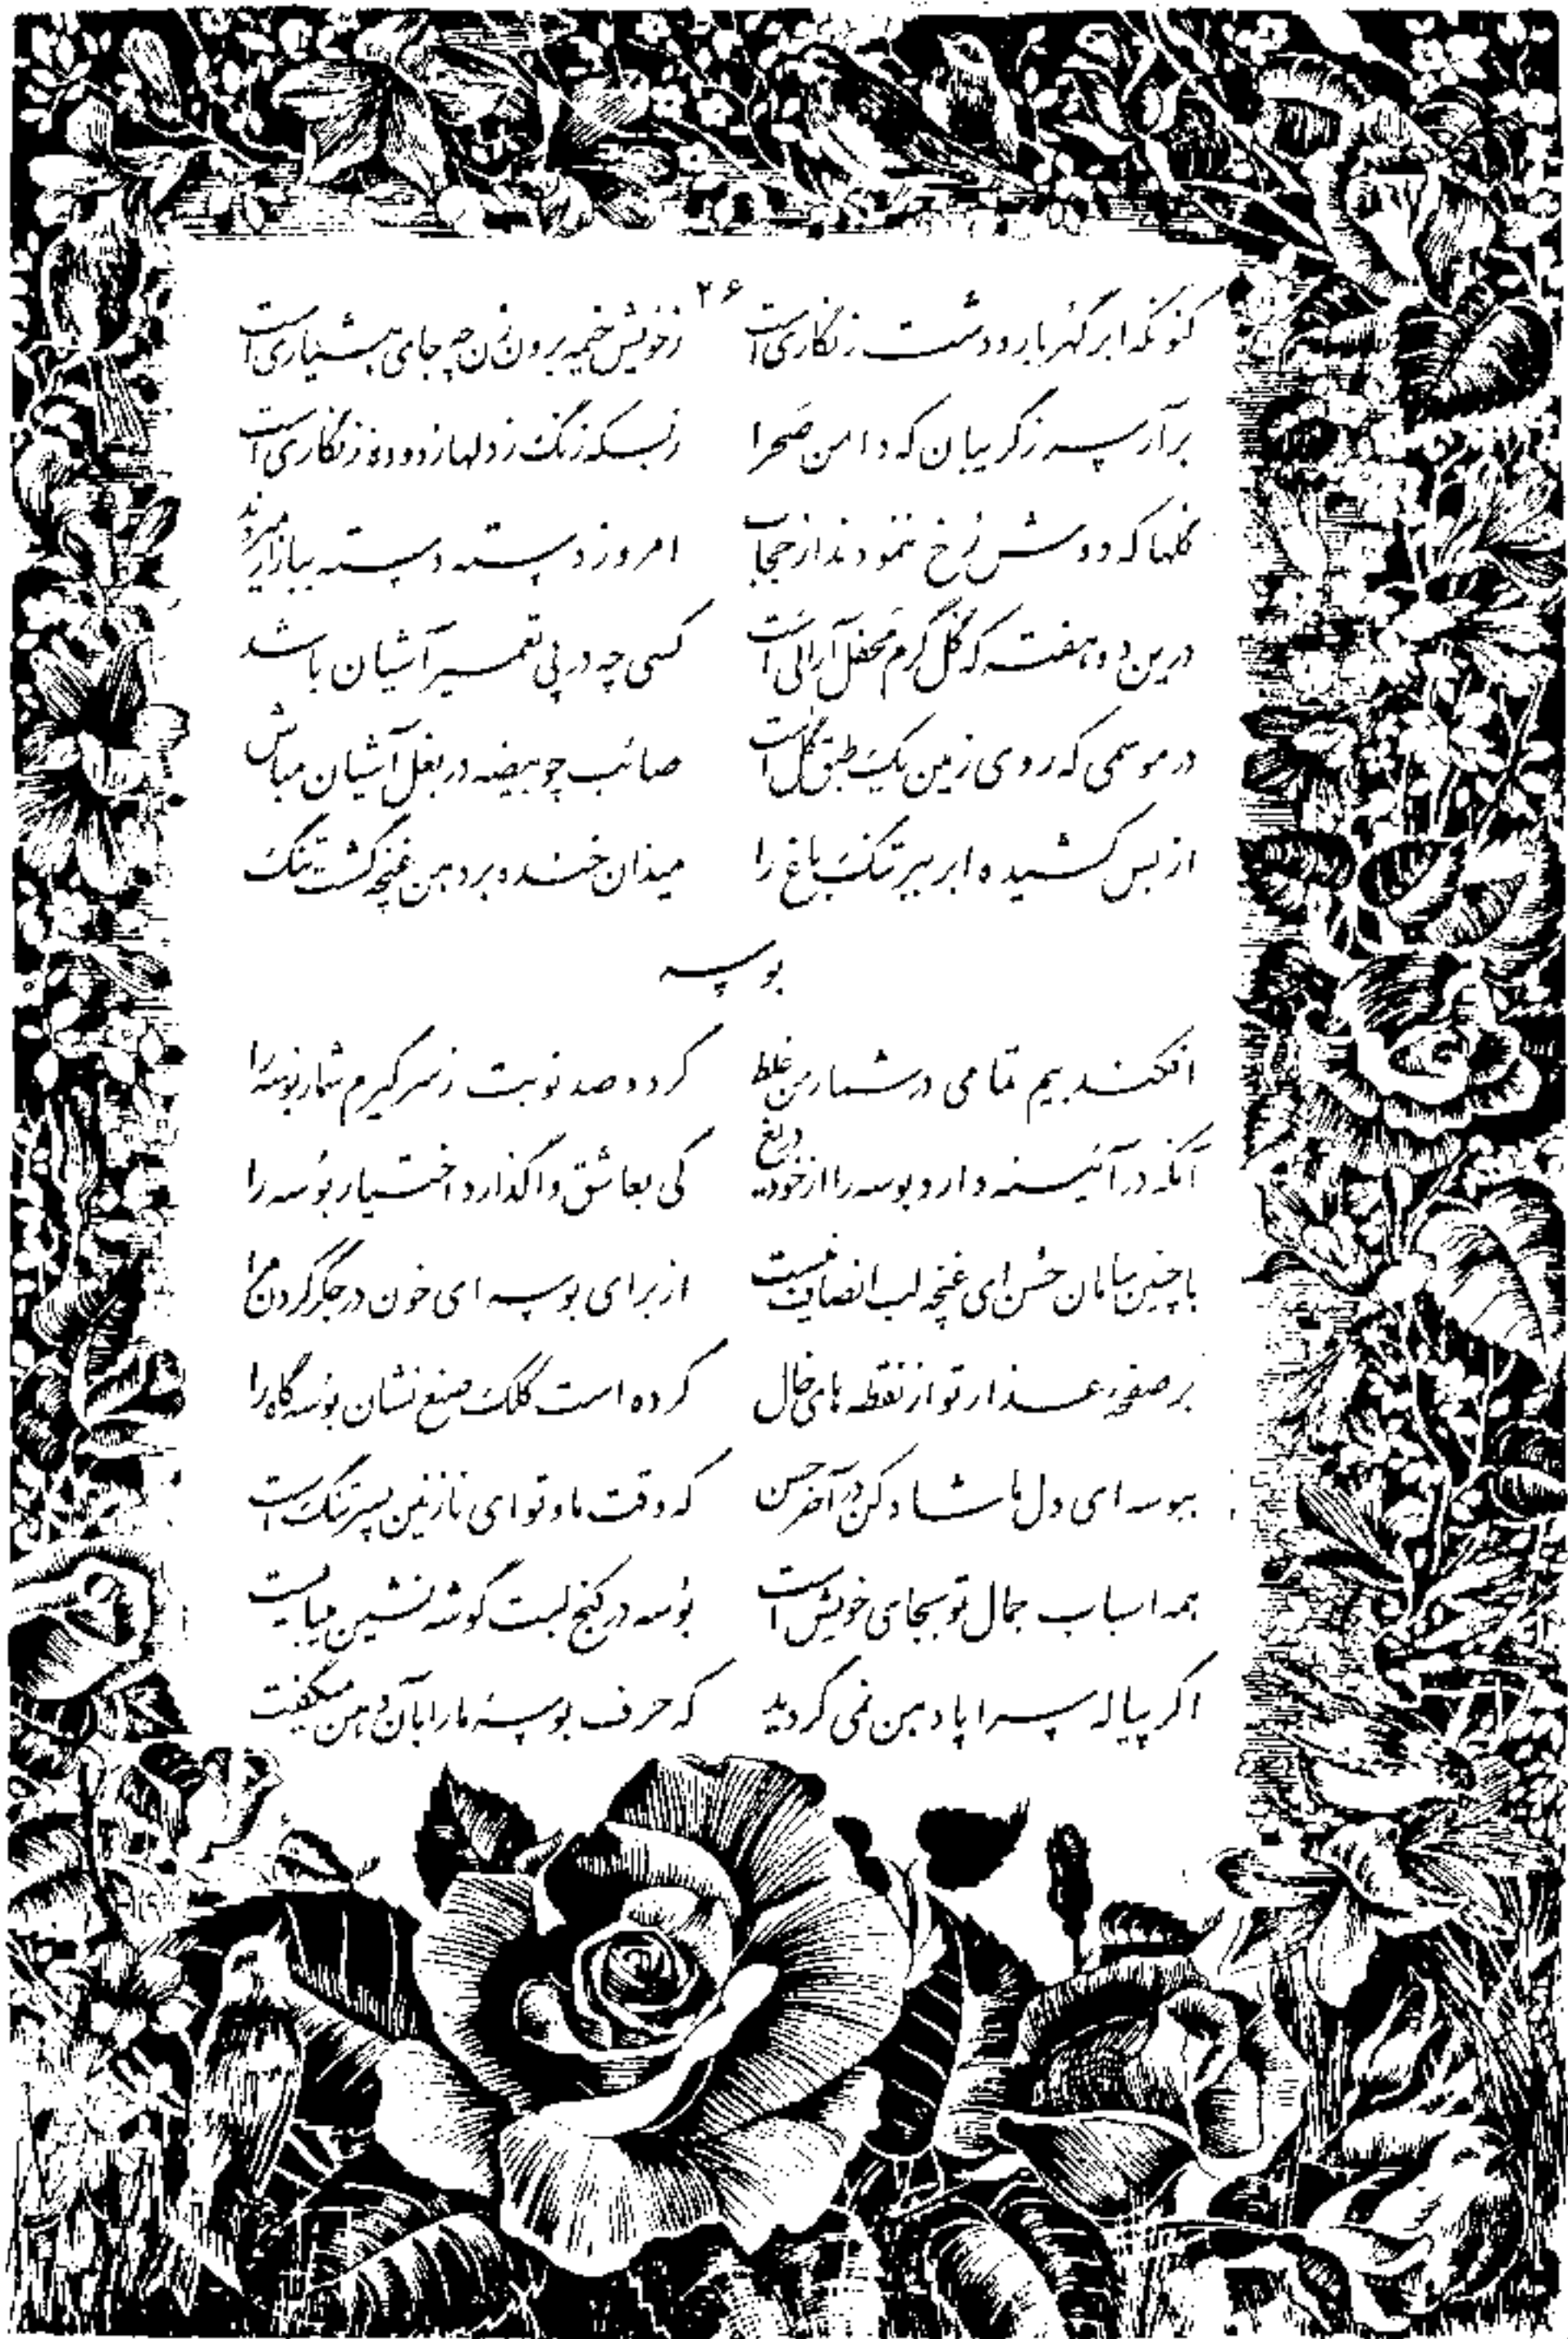 ۲۶
کنونکه ابر گهربار و دشت زنگاری است زخویش خیمه برون زن چه جای هشیاری است
برآر سر زگریبان که دامن صحرا زبسکه زنگ زدلها زدوده زنگاری است
گلها که دوش رخ ننمودند از حجاب امروز دسته دسته ببازار میروند
درین دو هفته که گل گرم محفل آرائی است کسی چه در پی تعمیر آشیان باشد
در موسمی که روی زمین یک طبق گل است صائب چو بیضه در بغل آشیان مباش
از بس کشیده ابر ببر تنگ باغ را میدان خنده بر دهن غنچه گشت تنگ
بوسه
افکند بیم تمامی در شمار من غلط گر دو صد نوبت زسر گیرم شمار بوسه را
آنکه در آئینه دارد بوسه را از خود دریغ کی بعاشق واگذارد اختیار بوسه را
با چنین سامان حسن ای غنچه لب انصاف نیست از برای بوسه ای خون در جگر کردن مرا
بر صفحه عذار تو از نقطه های خال کرده است کلک صنع نشان بوسه گاه را
ببوسه ای دل ما شاد کن در آخر حسن که وقت ما و تو ای نازنین پسر تنگ است
همه اسباب جمال تو بجای خویش است بوسه در کنج لبت گوشه نشین میبایست
اگر پیاله سراپا دهن نمی گردید که حرف بوسه ما را بآن دهن میگفت